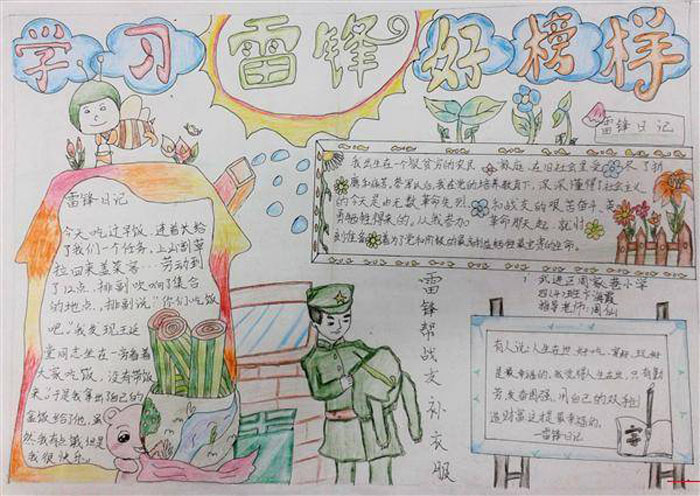 学习雷锋好榜样
雷锋日记
今天吃过早饭，连长给
了我们一个任务。上山割草
拉回来盖菜窖…劳动到
了12点，排副吹响了集合
的地点，排副说“你们吃饭
吧。”我发现王延
堂同志坐在一旁看着
大家吃饭，没有带饭
来，于是我拿出自己的
盒饭给了他，虽
然我有点饿，但是
我很快乐。
雷锋日记
我出生在一个很贫穷的农民家庭，在旧社会里受尽了折
磨和痛苦。参军以后，我在党的培养教育下，深深懂得了社会主义
的今天是由无数革命先烈和战友的艰苦奋斗，英
勇牺牲得来的。从我参加革命那天起，就时
刻准备着为了党和阶级的最高利益牺牲我最宝贵的生命。
雷锋帮战友补衣服
武进区周家巷小学
指导老师：周仙
有人说：人生在世，好吃，穿好，玩好
是最幸福的。我觉得人生在世，只有勤
劳，发奋图强，用自己的双手创
造财富，这才是最幸福的。
——雷锋日记
字